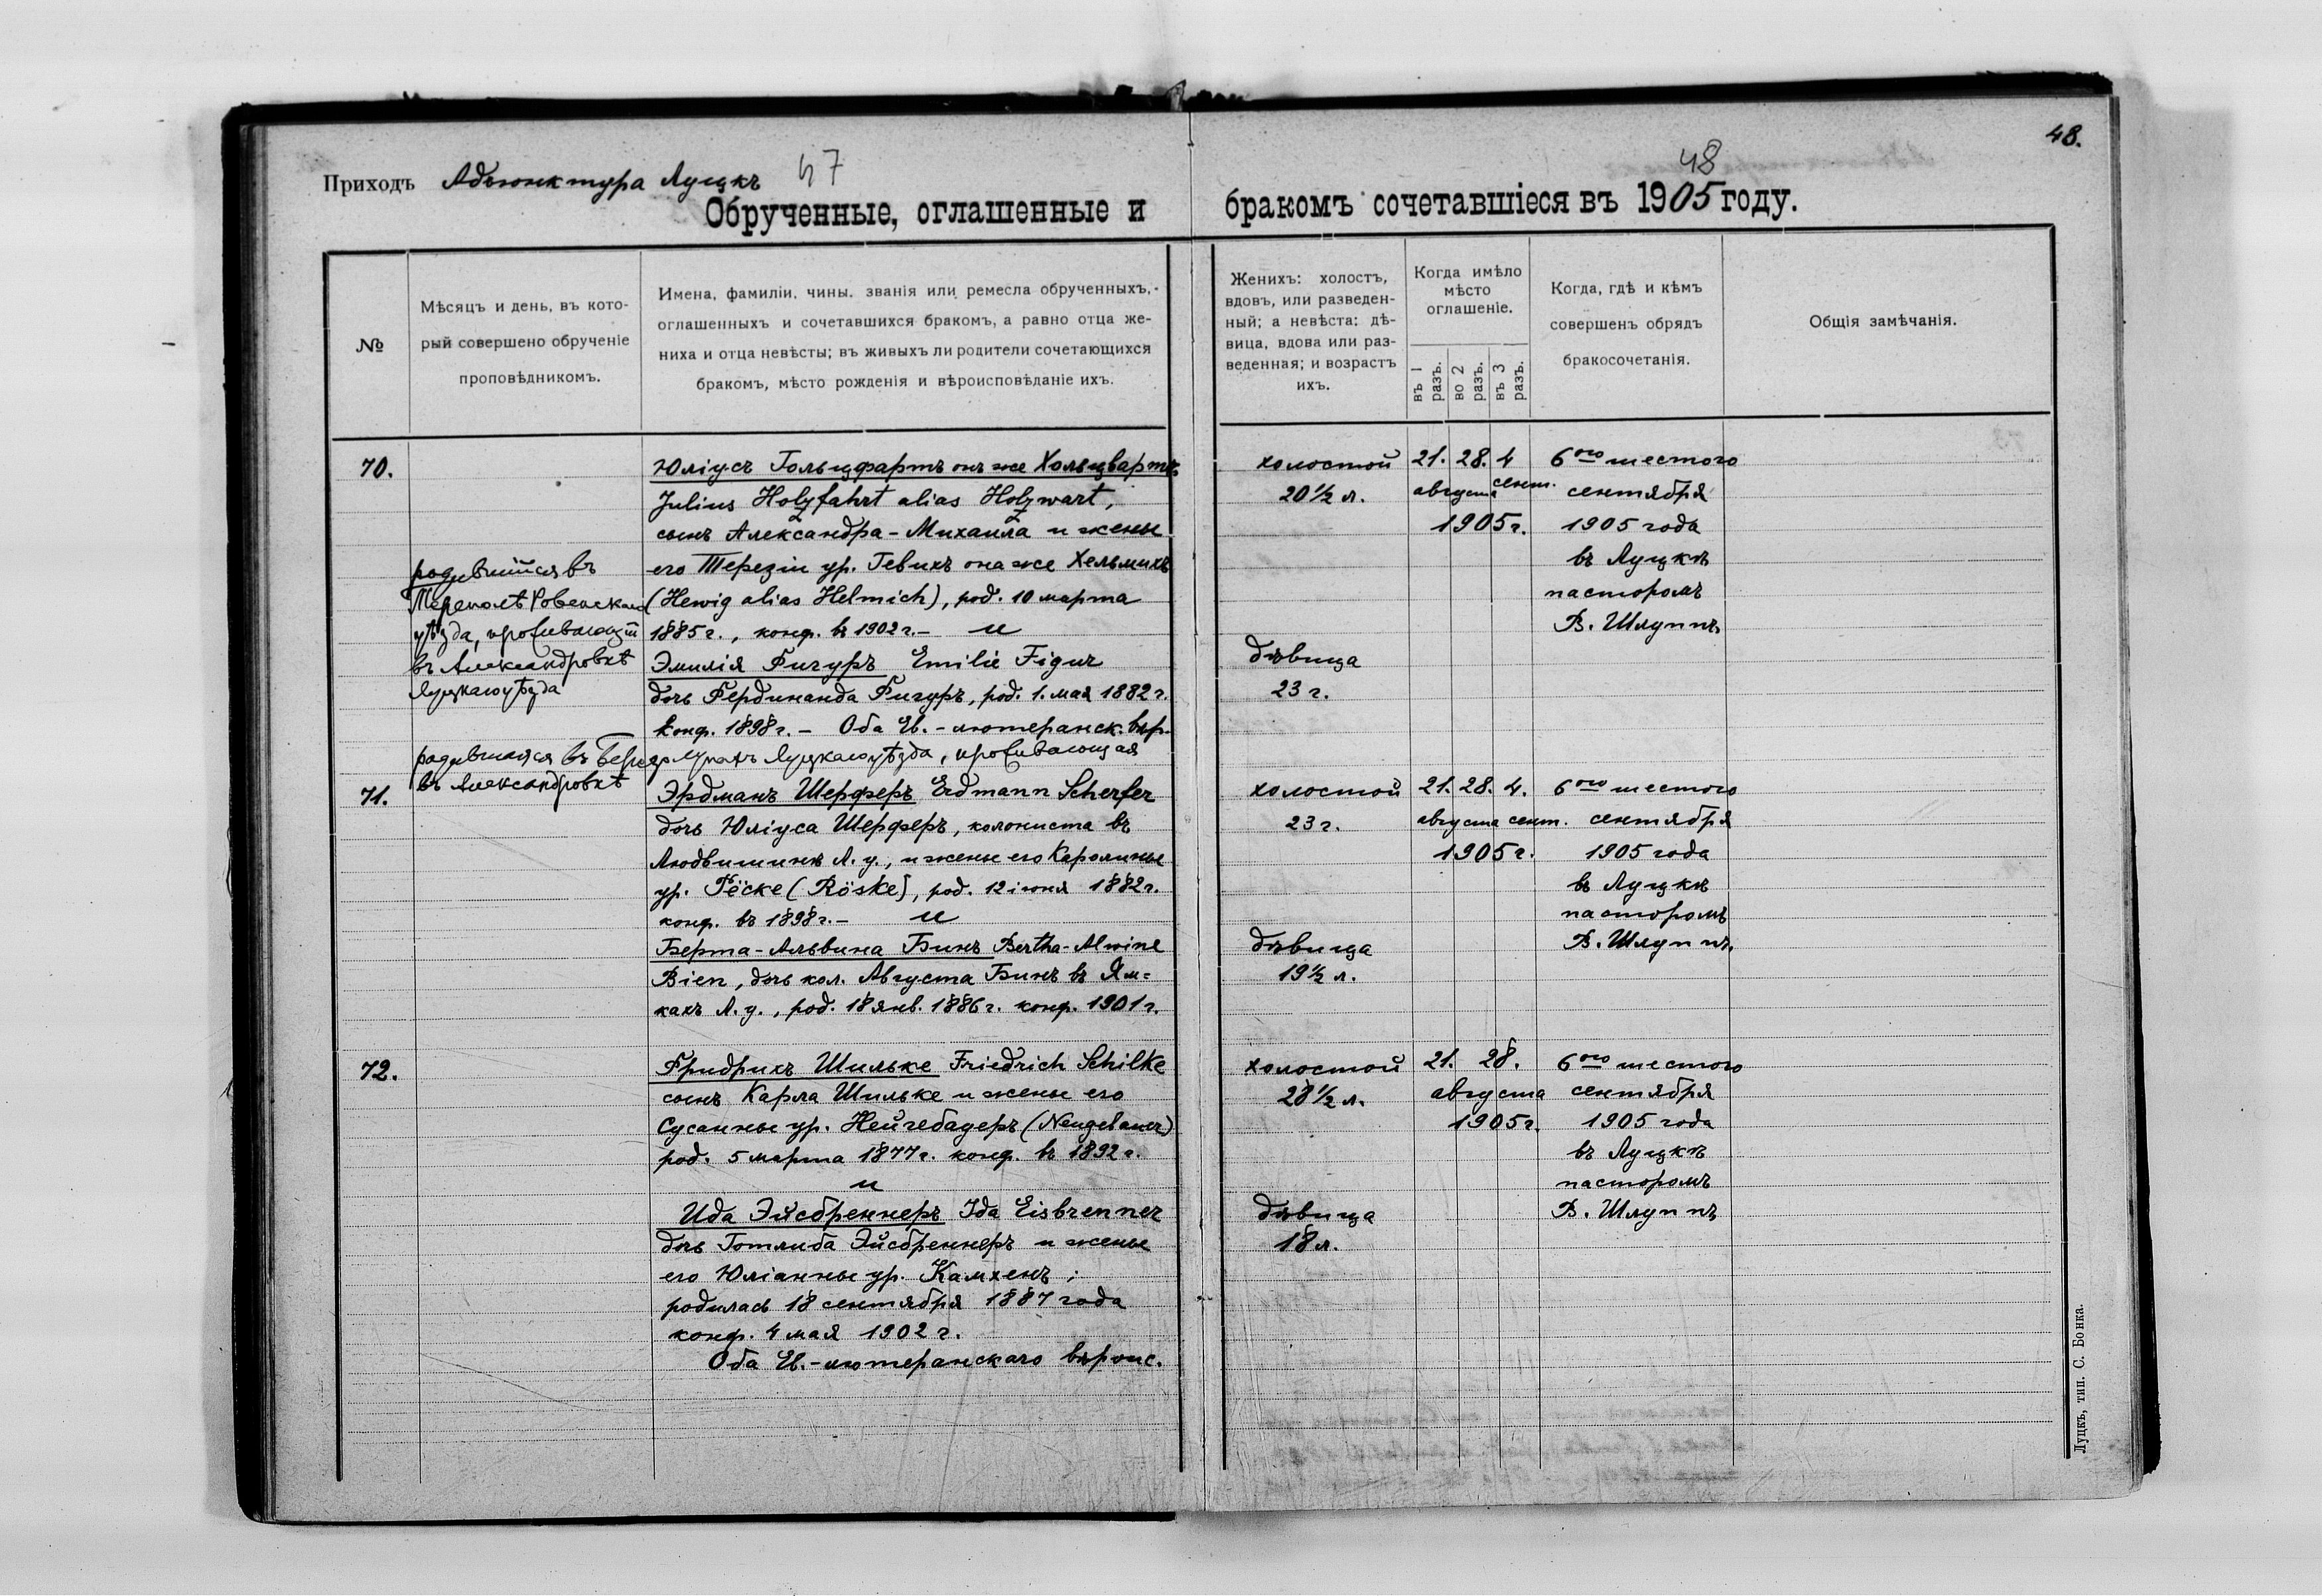 48.
Приходъ Адъюнктура Луцкъ 47
48
Обрученные, оглашенные и бракомъ сочетавшіеся въ 1905 году.
№
Мѣсяцъ и день, въ кото-
рый совершено обрученіе
проповѣдникомъ.
Имена, фамиліи, чины, званія или ремесла обрученныхъ,
оглашенныхъ и сочетавшихся бракомъ, а равно отца же-
ниха и отца невѣсты; въ живыхъ ли родители сочетающихся
бракомъ, мѣсто рожденія и вѣроисповѣданіе ихъ.
Женихъ: холостъ,
вдовъ, или разведен-
ный; а невѣста: дѣ-
вица, вдова или раз-
веденная; и возрастъ
ихъ.
Когда имѣло
мѣсто
оглашеніе.
въ 1 разъ.
во 2 разъ.
въ 3 разъ.
Когда, гдѣ и кѣмъ
совершенъ обрядъ
бракосочетанія.
Общія замѣчанія.
70.
родившійся въ
Ровенскаго
уѣзда, проживающій
въ Александровкѣ
Луцкаго уѣзда
Юліусъ Гольцфартъ онъ же Хольцвартъ
Julius Holzfahrt alias Holzwart,
сынъ Александра-Михаила и жены
его Терезіи ур. Гевихъ она же Хельмихъ
(Hewig alias Helmich), род. 10 марта
1885 г., конф. въ 1902 г. – и
Эмилія Фигуръ Emilie Figur
дочь Фердинанда Фигуръ, род. 1. мая 1882 г.
конф. 1898 г. – Оба Ев.-лютеранск. вѣр.
родившаяся въ Луцкаго уѣзда, проживающая
въ Александровкѣ
холостой
20 1/2 л.
дѣвица
23 г.
21. 28. 4
августа сент.
1905 г.
6ого шестого
сентября
1905 года
въ Луцкѣ
пасторомъ
В. Шлуппъ
71.
Эрдманъ Шерферъ Erdmann Scherfer
дочь Юліуса Шерферъ, колониста въ
Людвишинѣ Л. у., и жены его Каролины
ур. Рёске (Röske), род. 12 іюня 1882 г.
конф. въ 1898 г. – и
Берта-Альвина Бинъ Bertha-Alwine
Bien, дочь кол. Августа Бинъ въ Ям-
кахъ Л. у., род. 18 янв. 1886 г. конф. 1901 г.
холостой
23 г.
дѣвица
19 1/2 л.
21. 28. 4.
августа сент.
1905 г.
6ого шестого
сентября
1905 года
въ Луцкѣ
пасторомъ
В. Шлуппъ.
72.
Фридрихъ Шильке Friedrich Schilke
сынъ Карла Шильке и жены его
Сусанны ур. Нейгебауеръ (Neugebauer)
род. 5 марта 1877 г. конф. въ 1892 г.
и
Ида Эйсбреннеръ Ida Eisbrenner
дочь Готлиба Эйсбреннеръ и жены
его Юліанны ур. Камхенъ;
родилась 18 сентября 1887 года
конф. 4 мая 1902 г.
Оба Ев.-лютеранскаго вѣроис.
холостой
28 1/2 л.
дѣвица
18 л.
21. 28.
августа
1905 г.
6ого шестого
сентября
1905 года
въ Луцкѣ
пасторомъ
В. Шлуппъ
Луцкъ, тип. С. Бонка.